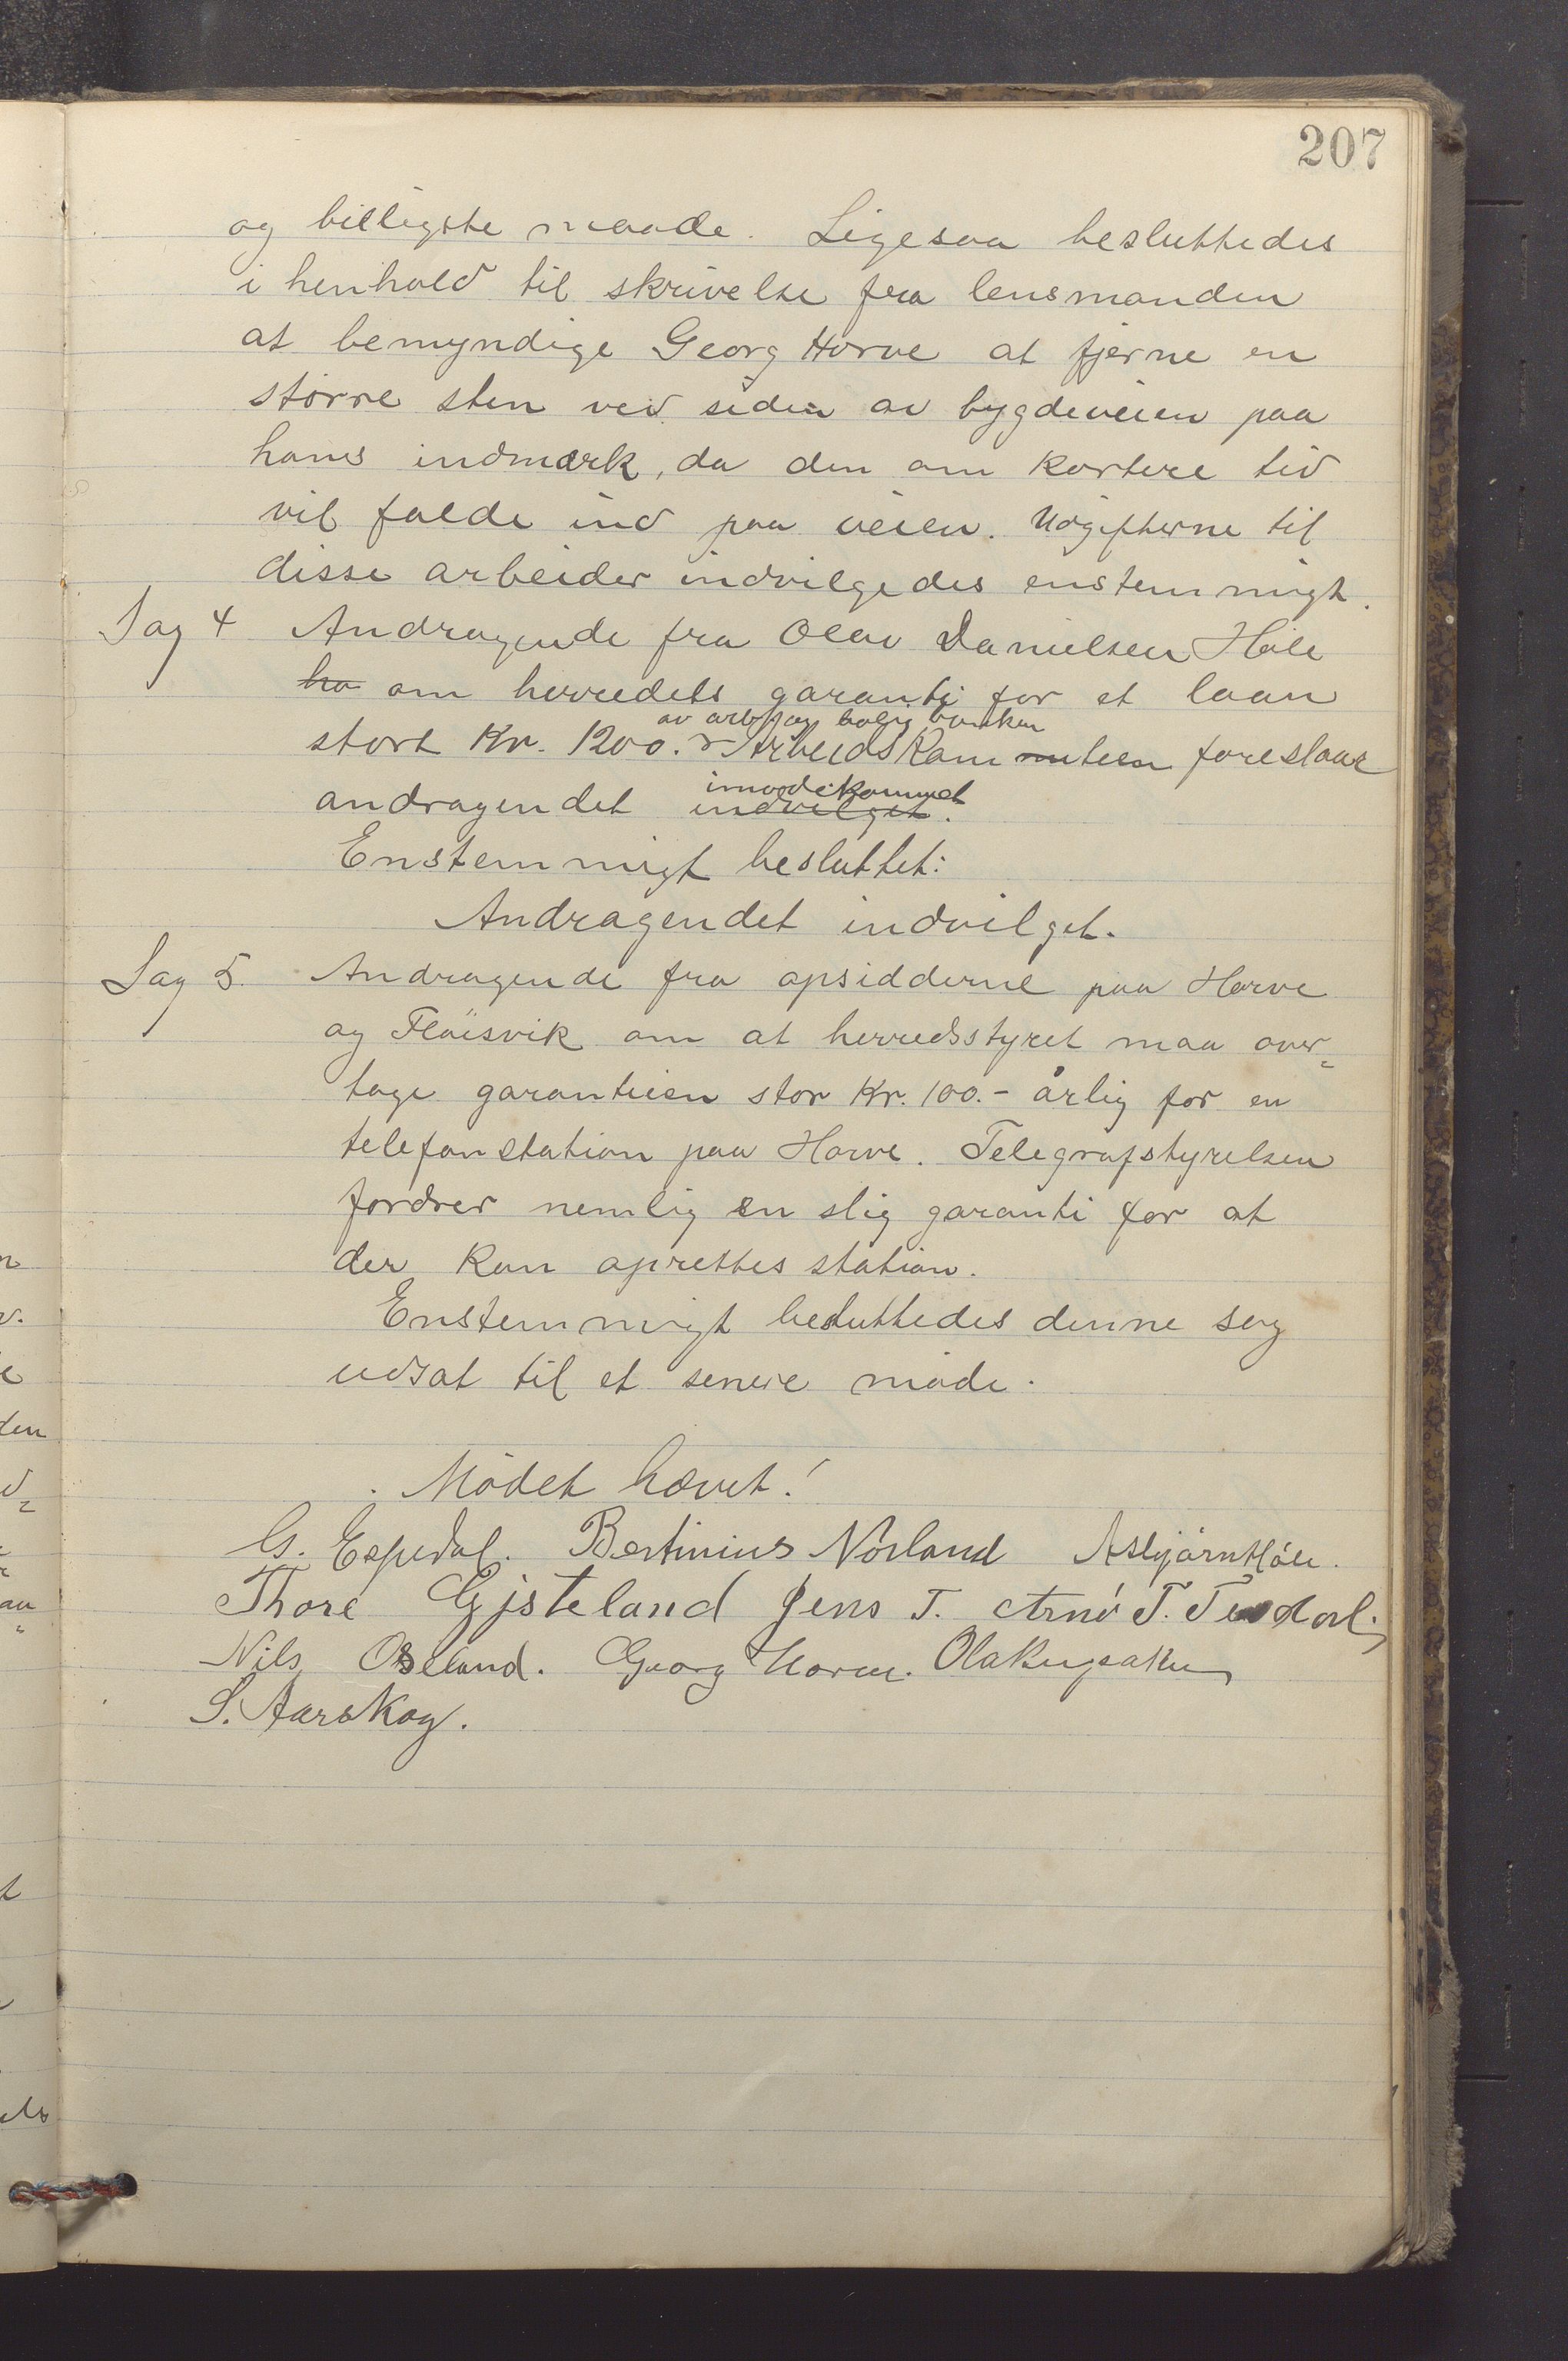 207
og billigste maade. Ligesaa besluttedes
i henhold til skrivelse fra lensmanden
at bemyndige Georg Horve at fjerne en
større sten ved siden av bygdeveien paa
hans indmark, da den om kortere tid
vil falde ind paa veien. Udgifterne til
disse arbeider indvilgedes enstemmigt.
Sag 4 Andragende fra Olav Danielsen Høle
ha om herredets garanti for et laan
av arb. og bolig banken
stort Kr. 1200. Arbeidskommiteen foreslaar
imødekommet
andragendet indvilget.
Enstemmigt besluttet:
Andragendet indvilget.
Sag 5. Andragende fra opsidderne paa Horve
og Fløisvik om at herredsstyret maa over-
tage garantien stor Kr. 100.- årlig for en
telefonstation paa Horve. Telegrafstyrelsen
fordrer nemlig en slig garanti for at
der kan oprettes station.
Enstemmigt besluttedes denne sag
udsat til et senere møde.
Mødet hævet!
G. Espedal. Bertinius Norland Asbjørn Høle.
Thore Gjsteland Jens T. Arnø T.
Nils Oseland. Georg Horve.
S. Aarskog.